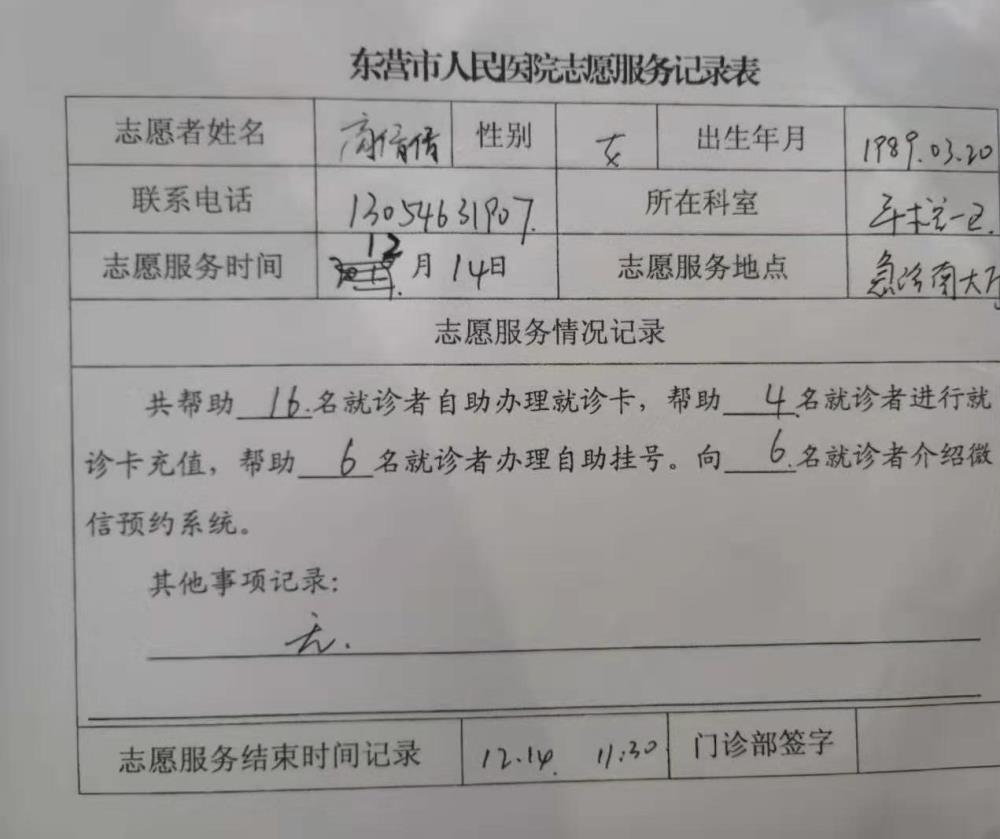 东营市人民医院志愿服务记录表
志愿者姓名 高倩倩 性别 女 出生年月 1989.03.20
联系电话 13054631907. 所在科室
志愿服务时间 12月14日 志愿服务地点 急诊南大厅
志愿服务情况记录
共帮助16.名就诊者自助办理就诊卡，帮助4.名就诊者进行就
诊卡充值，帮助6名就诊者办理自助挂号。向6.名就诊者介绍微
信预约系统。
其他事项记录：
无.
志愿服务结束时间记录 12.14. 11:30 门诊部签字